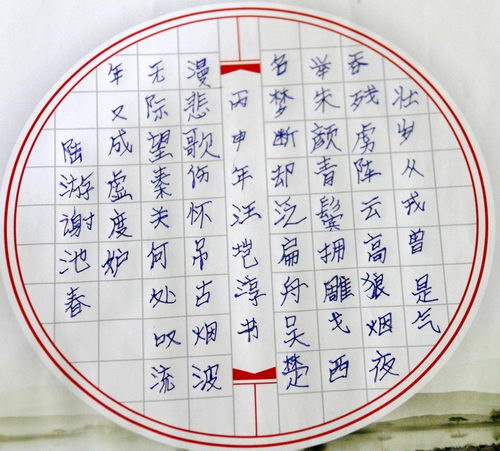 壮岁从戎曾是气
吞残虏阵云高狼烟夜
举朱颜青鬓拥雕戈西
名梦断却泛扁舟吴楚
丙申年汪垲淳书
漫悲歌伤怀吊古烟波
无际望秦关何处叹流
年又成虚度妒
陆游谢池春